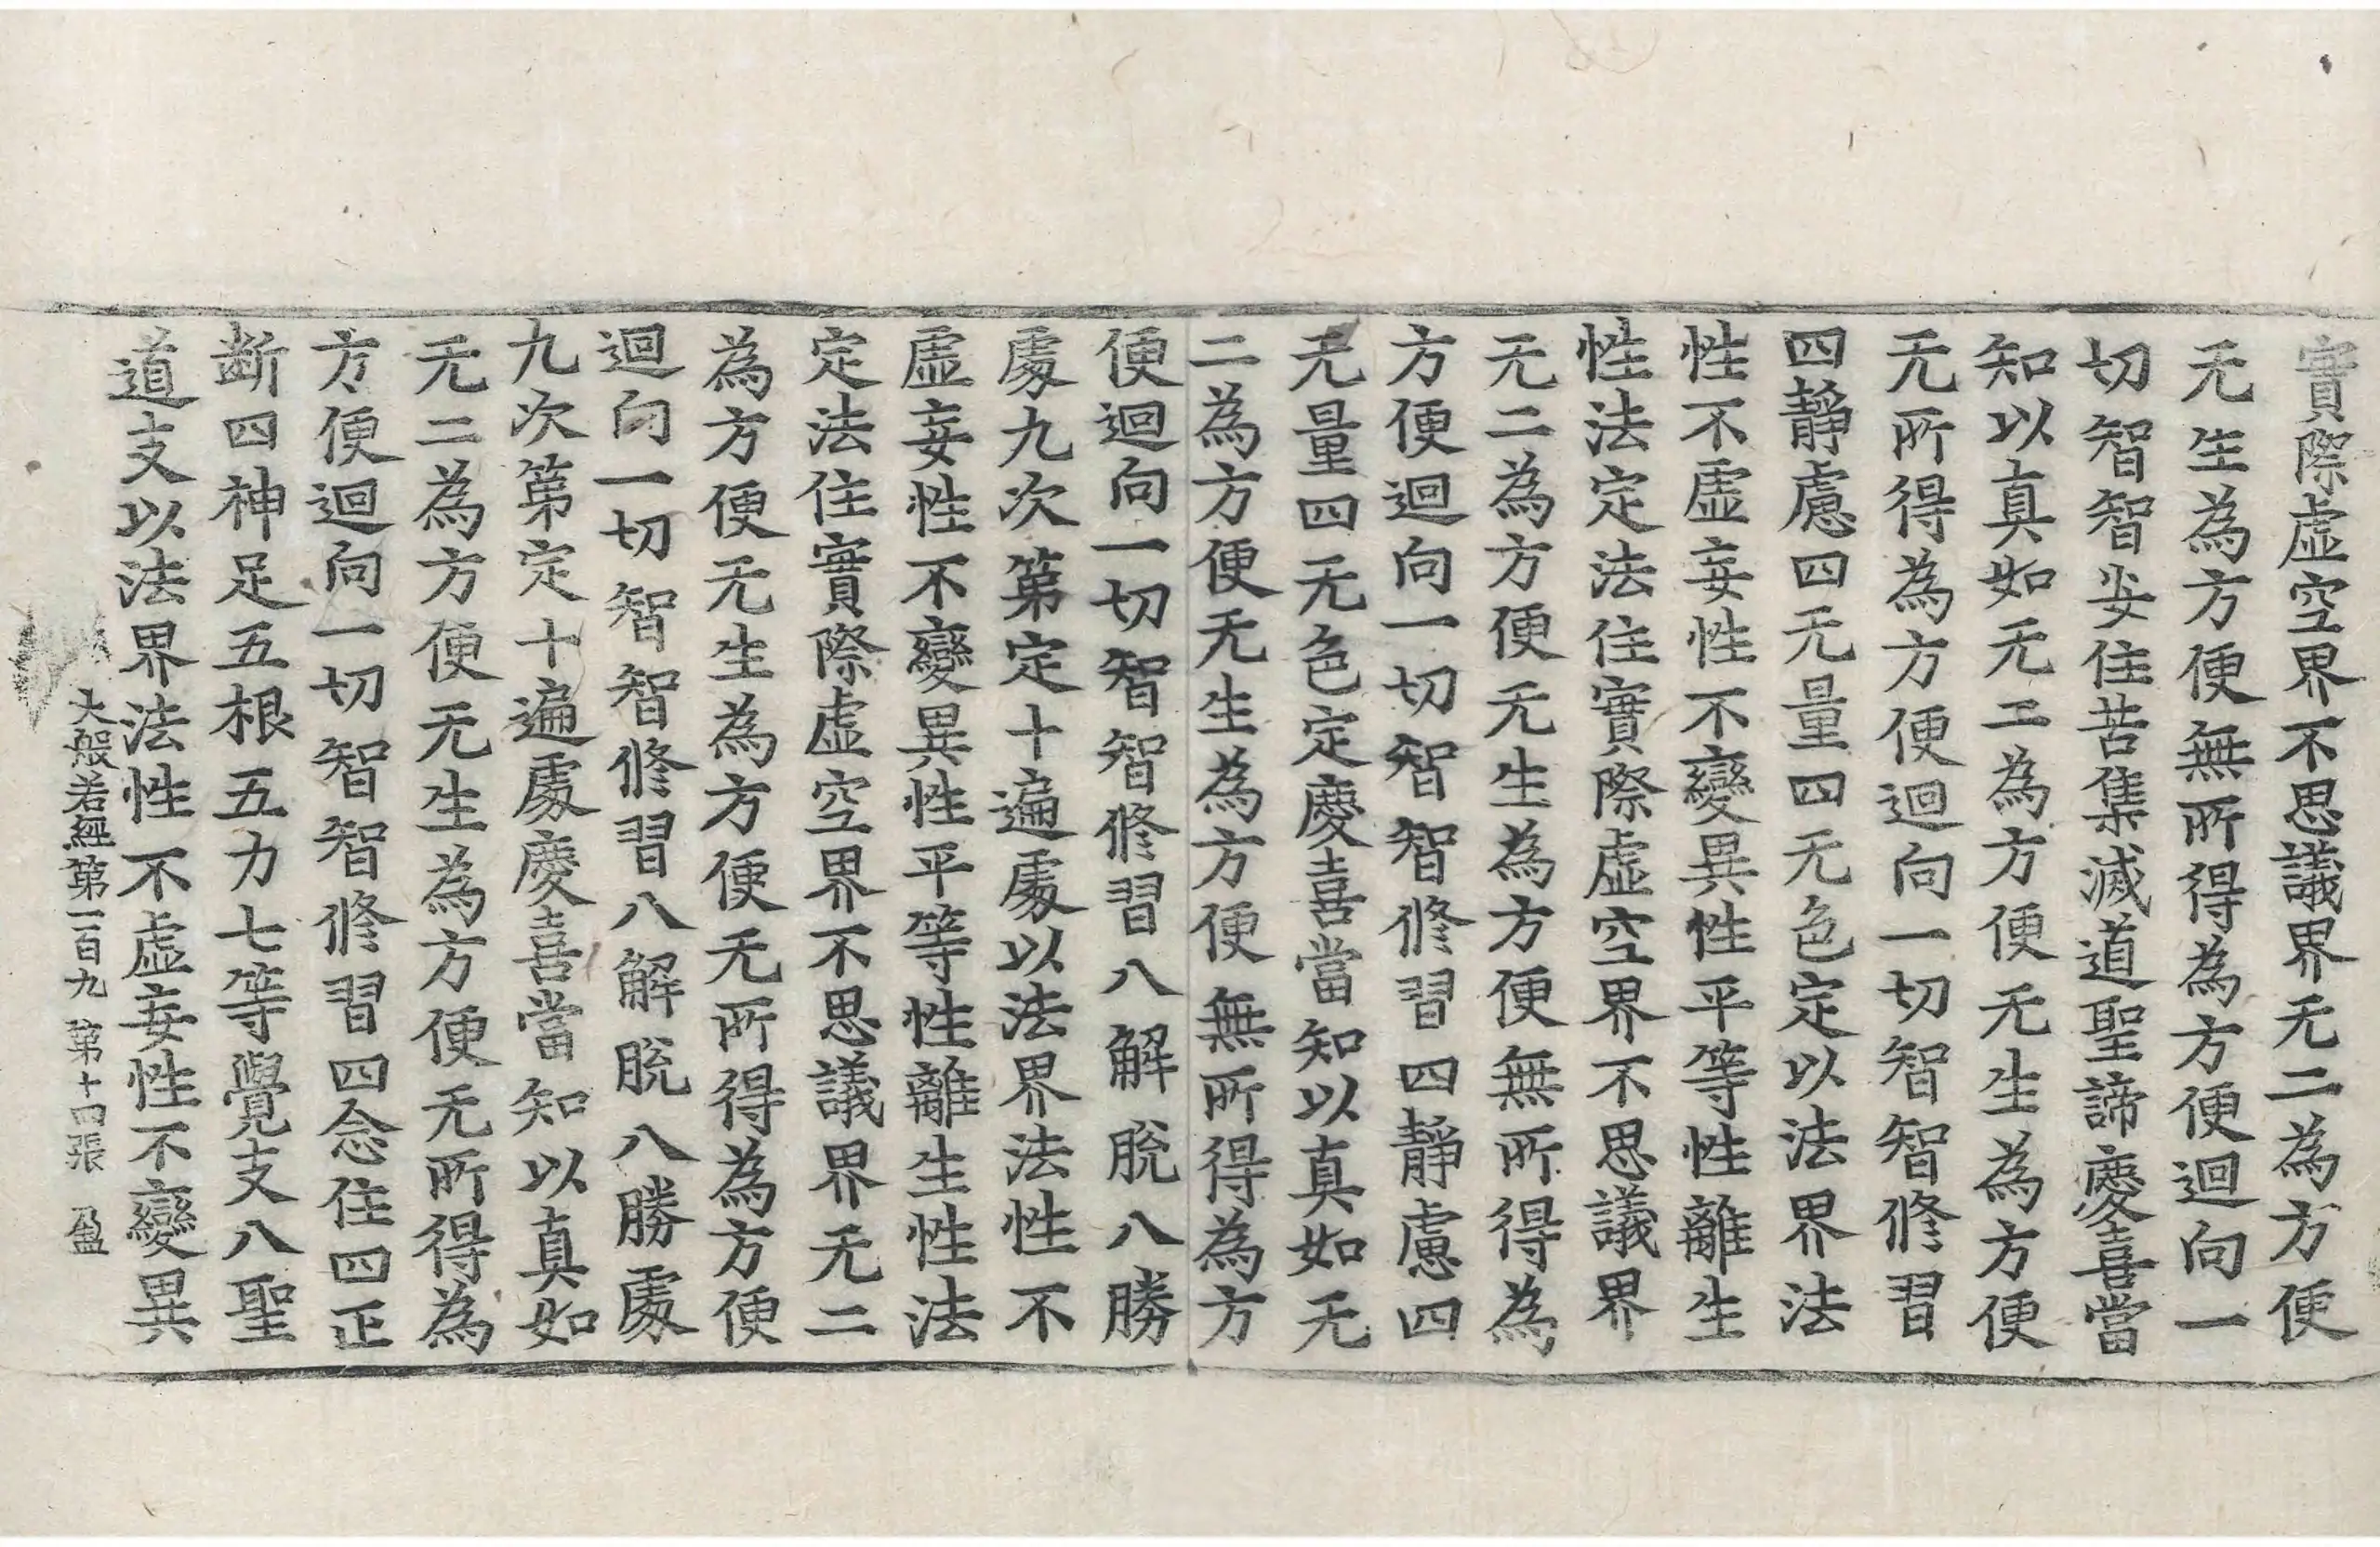 實際虛空界不思議界无二為方便
无生為方便無所得為方便迴向一
切智智安住苦集滅道聖諦慶喜當
知以真如无二為方便无生為方便
无所得為方便迴向一切智智修習
四靜慮四无量四无色定以法界法
性不虛妄性不變異性平等性離生
性法定法住實際虛空界不思議界
无二為方便无生為方便無所得為
方便迴向一切智智修習四靜慮四
无量四无色定慶喜當知以真如无
二為方便无生為方便無所得為方
便迴向一切智智修習八解脫八勝
處九次第定十遍處以法界法性不
虛妄性不變異性平等性離生性法
定法住實際虛空界不思議界无二
為方便无生為方便无所得為方便
迴向一切智智修習八解脫八勝處
九次第定十遍處慶喜當知以真如
无二為方便无生為方便无所得為
方便迴向一切智智修習四念住四正
斷四神足五根五力七等覺支八聖
道支以法界法性不虛妄性不變異
大般若經第一百九 第十四張 盈